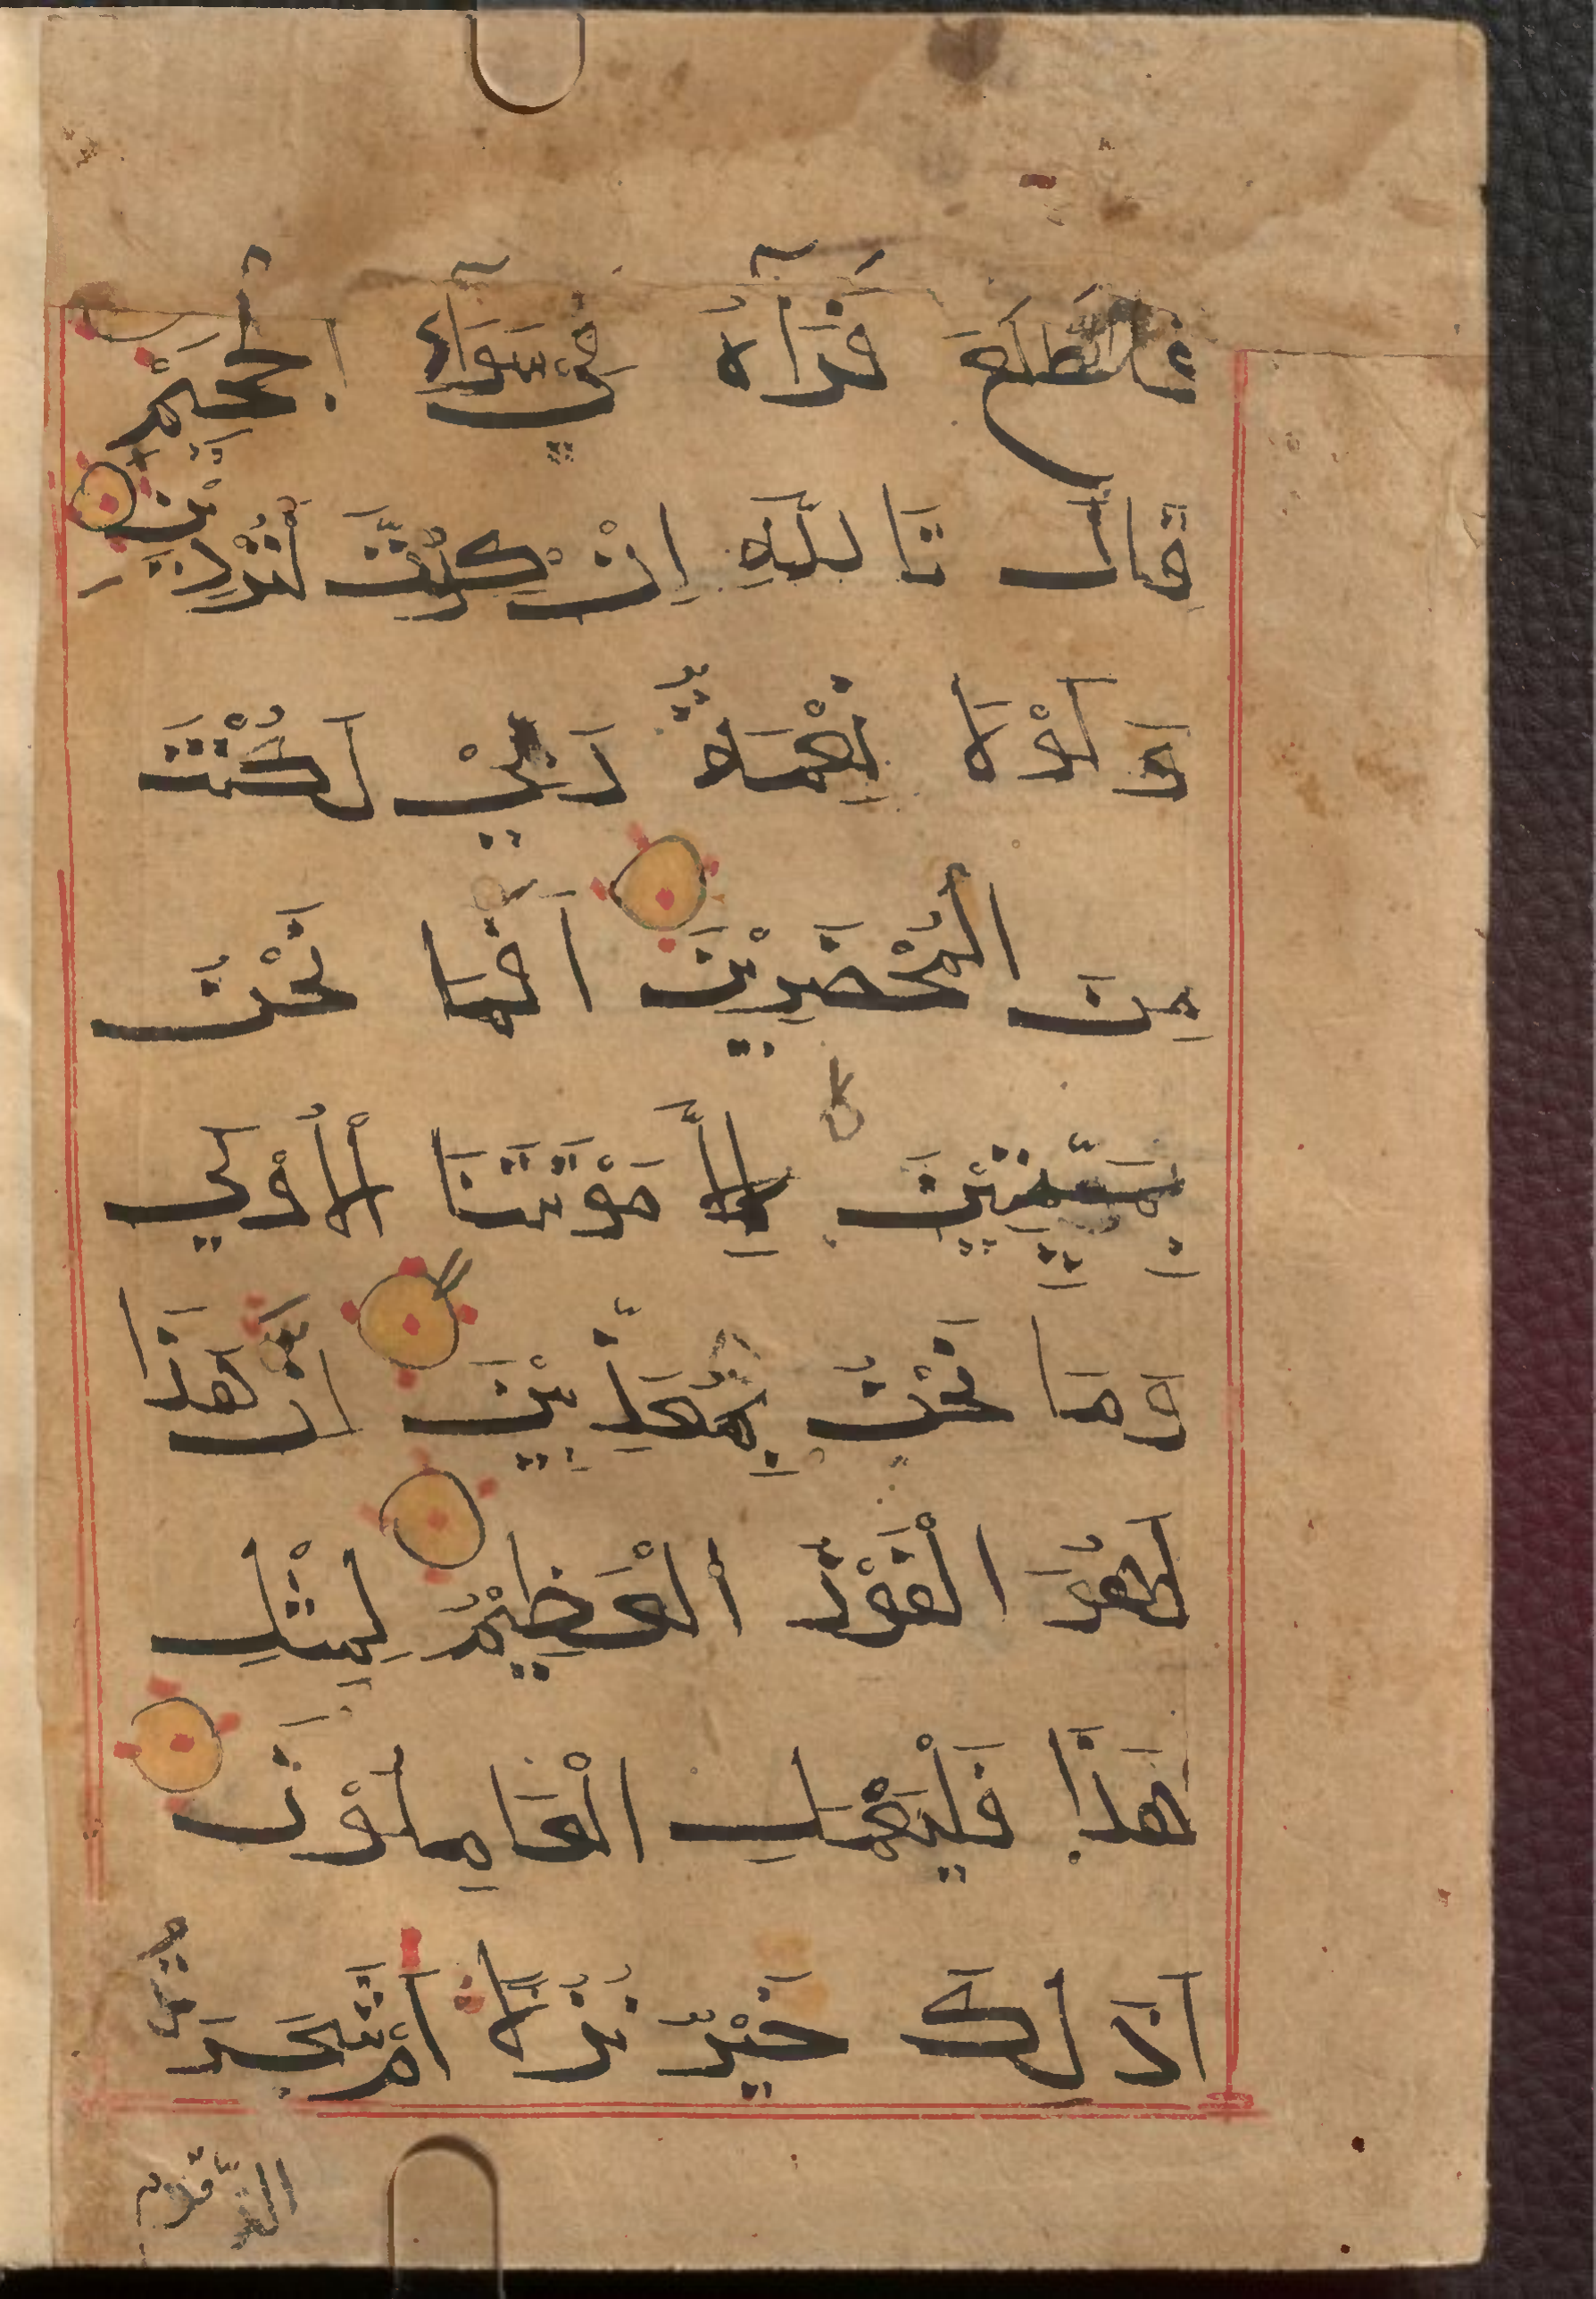 فَاطَّلَعَ فَرَآهُ فِي سَوَآءِ الْجَحِيْمِ
قَالَ تَاللَّهِ اِنْ كِدْتَّ لَتُرْدِيْنِ
وَلَوْلَا نِعْمَةُ رَبِّيْ لَكُنْتُ
مِنَ الْمُحْضَرِيْنَ اَفَمَا نَحْنُ
بِمَيِّتِيْنَ اِلَّا مَوْتَتَنَا الْاُوْلٰي
وَمَا نَحْنُ بِمُعَذَّبِيْنَ اِنَّ هَذَا
لَهُوَ الْفَوْزُ الْعَظِيْمُ لِمِثْلِ
هَذَا فَلْيَعْمَلِ الْعَامِلُوْنَ
اَذَلِكَ خَيْرٌ نُزُلًا اَمْ شَجَرَةُ
الزَّقُّوْمِ